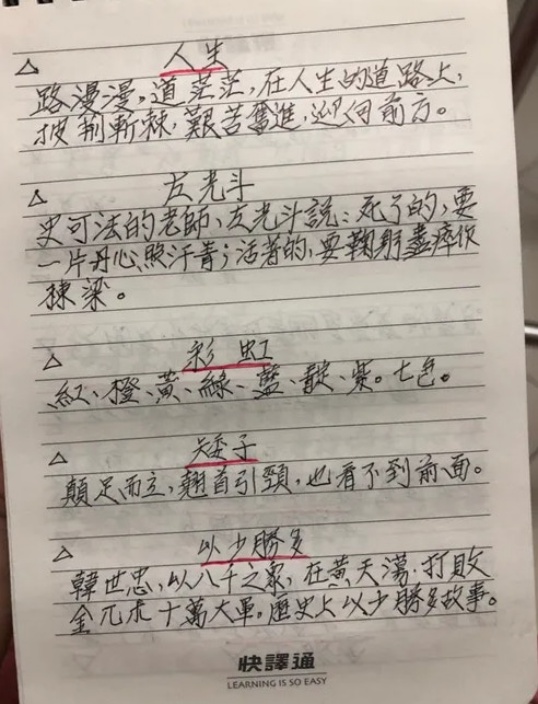 △ 人生
路漫漫,道茫茫,在人生的道路上,
披荊斬棘,艱苦奮進,迎向前方。
△ 左光斗
史可法的老師、左光斗說:死了的,要
一片丹心照汗青;活著的,要鞠躬盡瘁作
棟梁。
△ 彩虹
紅、橙、黃、綠、藍、靛、紫。七色。
△ 矮子
顛足而立,翹首引頸,也看不到前面。
△ 以少勝多
韓世忠,以八千之眾,在黃天蕩,打敗
金兀朮十萬大軍。歷史上以少勝多故事。
快譯通
LEARNING IS SO EASY